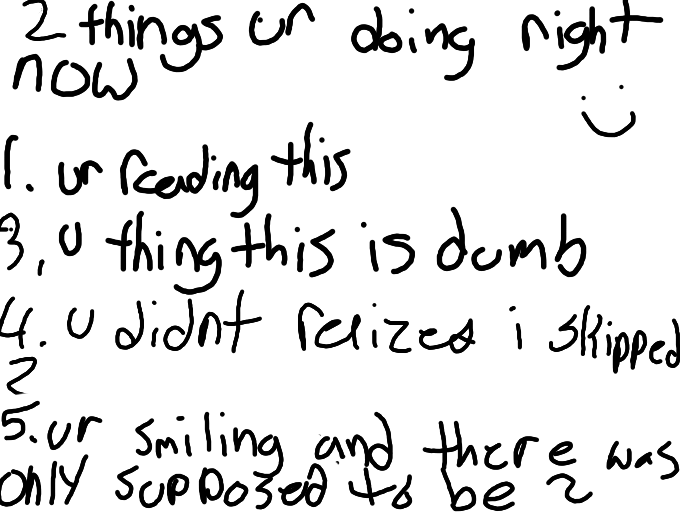 2 things ur doing right
now
1. ur reading this
3, u thing this is dumb
4. u didnt relizes i skipped
2
5. ur smiling and there was
only supposed to be 2